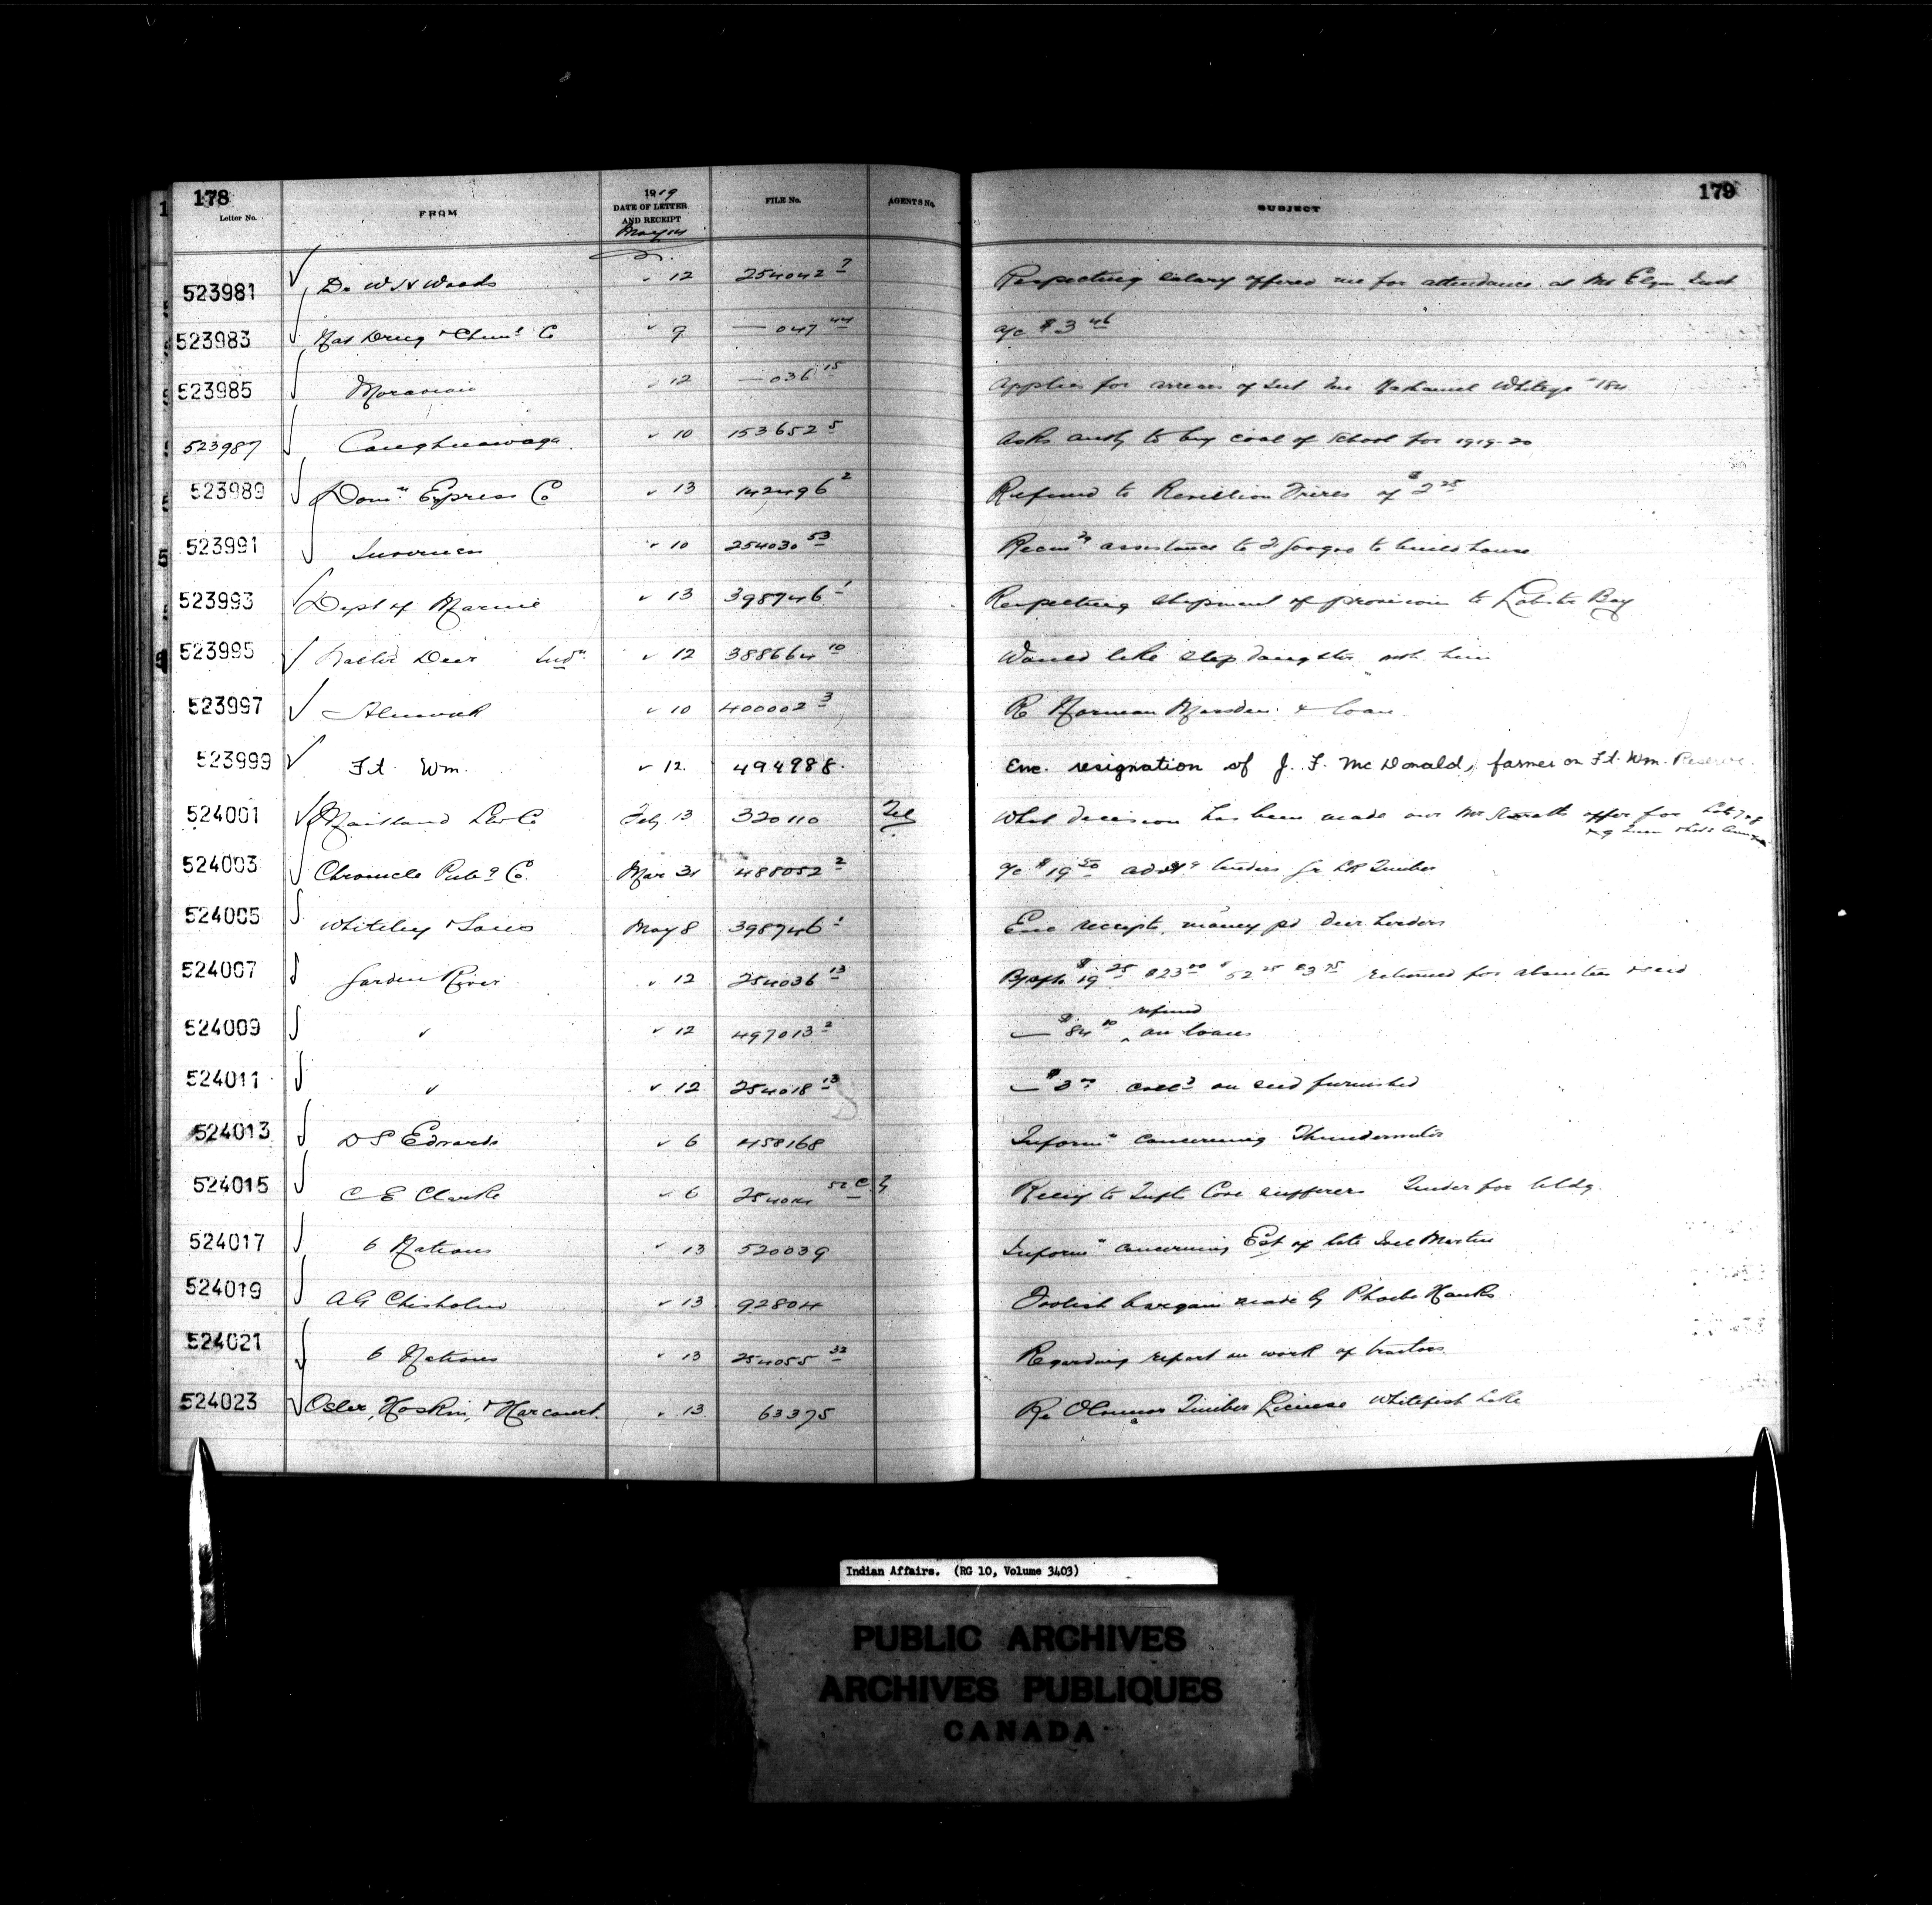 178
179
Letter No.
FROM
1919
DATE OF LETTER
AND RECEIPT
May 14
FILE No.
AGENTS No.
SUBJECT
523981 Dr W H Woods " 12 254042 7 Respecting salary offered me for attendance at Mt Elgin Inst
523983 Nat Drug & Chem Co " 9 — 047 44 a/c $3 46
523985 Moravian " 12 — 036 15 Applies for arrears of Int Mr Nathaniel #184
523987 Caughnawaga " 10 153652 5 Asks auth to buy coal of School for 1919-20
523989 Domn Express Co " 13 142496 2 Refund to Revillion Freres of $2 25
523991 " 10 254030 53 Recmn assistance to J to build house
523993 Dept of Marine " 13 398746 1 Respecting shipment of provisions to Lobstr Bay
523995 Deer Indn " 12 388664 10 Would like step daughter with him
523997 Alnwick " 10 400002 3 Re Norman Marsden & loan
523999 Ft. Wm. " 12. 494988. Enc. resignation of J. F. McDonald, farmer on Ft. Wm. Reserve.
524001 Maitland Co Feb 13 320110 Tel What decision has been made our Mr offer for
524003 Chronicle Pubg Co. Mar 31 488052 2 a/c $19 50 advtg tenders for Timber
524005 Whiteley & Sons May 8 398746 1 Enc receipts, money pd deer herders
524007 Garden River " 12 254036 13 $19 25 $23 00 $52 25 $3 75 returned for absentee
524009 " " 12 497013 2 — $84 10 refund on loans
524011 " " 12 254018 13 — $3 colld on seed furnished
524013 D S Edwards " 6 458168 Informn concerning Thunderwater
524015 C E Clarke " 6 52 C.7 Relief to Tufts Cove sufferers Tender for bldg.
524017 6 Nations " 13 520039 Informn concerning Est of late Joel Martin
524019 A G Chisholm " 13 92804 Foolish bargain made by Phoebe Hanks
524021 6 Nations " 13 254055 32 Regarding report on work of tractors
524023 Osler, Hoskin, & Harcourt. " 13 63375 Re OConnor Timber License Whitefish Lake
Indian Affairs. (RG 10, Volume 3403)
PUBLIC ARCHIVES
ARCHIVES PUBLIQUES
CANADA